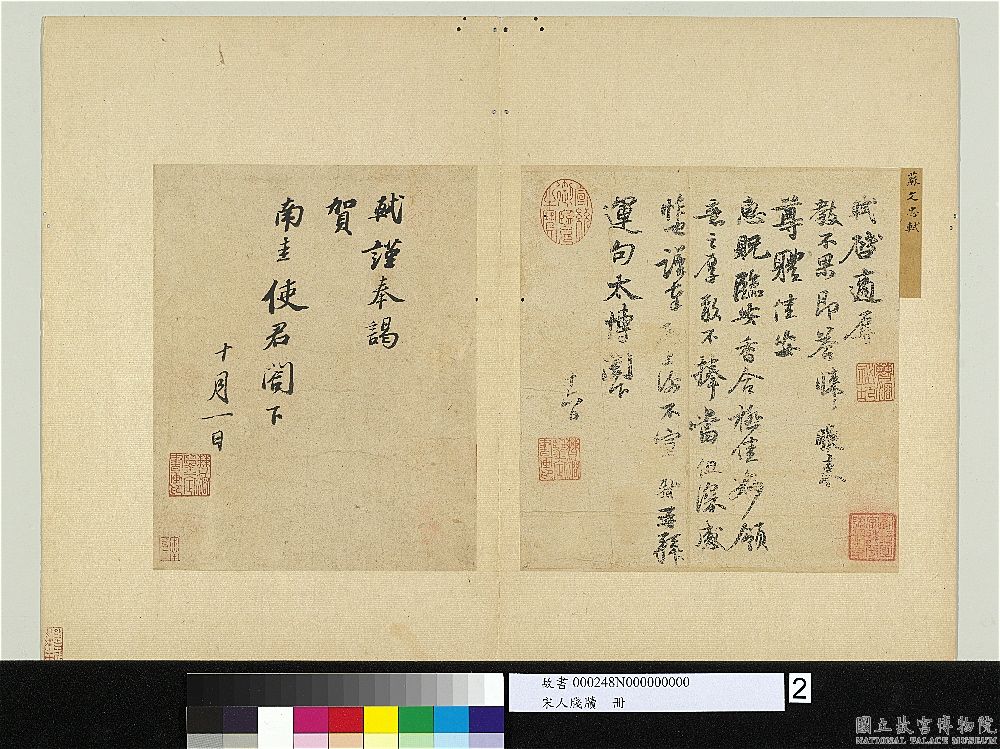 蘇文忠軾
軾啓適辱
教不果即答悚悚晚來
尊體佳安
惠貺臨安香合極佳妙領
意之厚敢不捧當但深感
怍也謹奉啓上謝不宣軾再拜
運句太博閣下
十六日
軾謹奉謁
賀
南圭使君閣下
十月一日
故書000248N000000000
宋人牋牘 冊
2
國立故宮博物院
NATIONAL PALACE MUSEUM